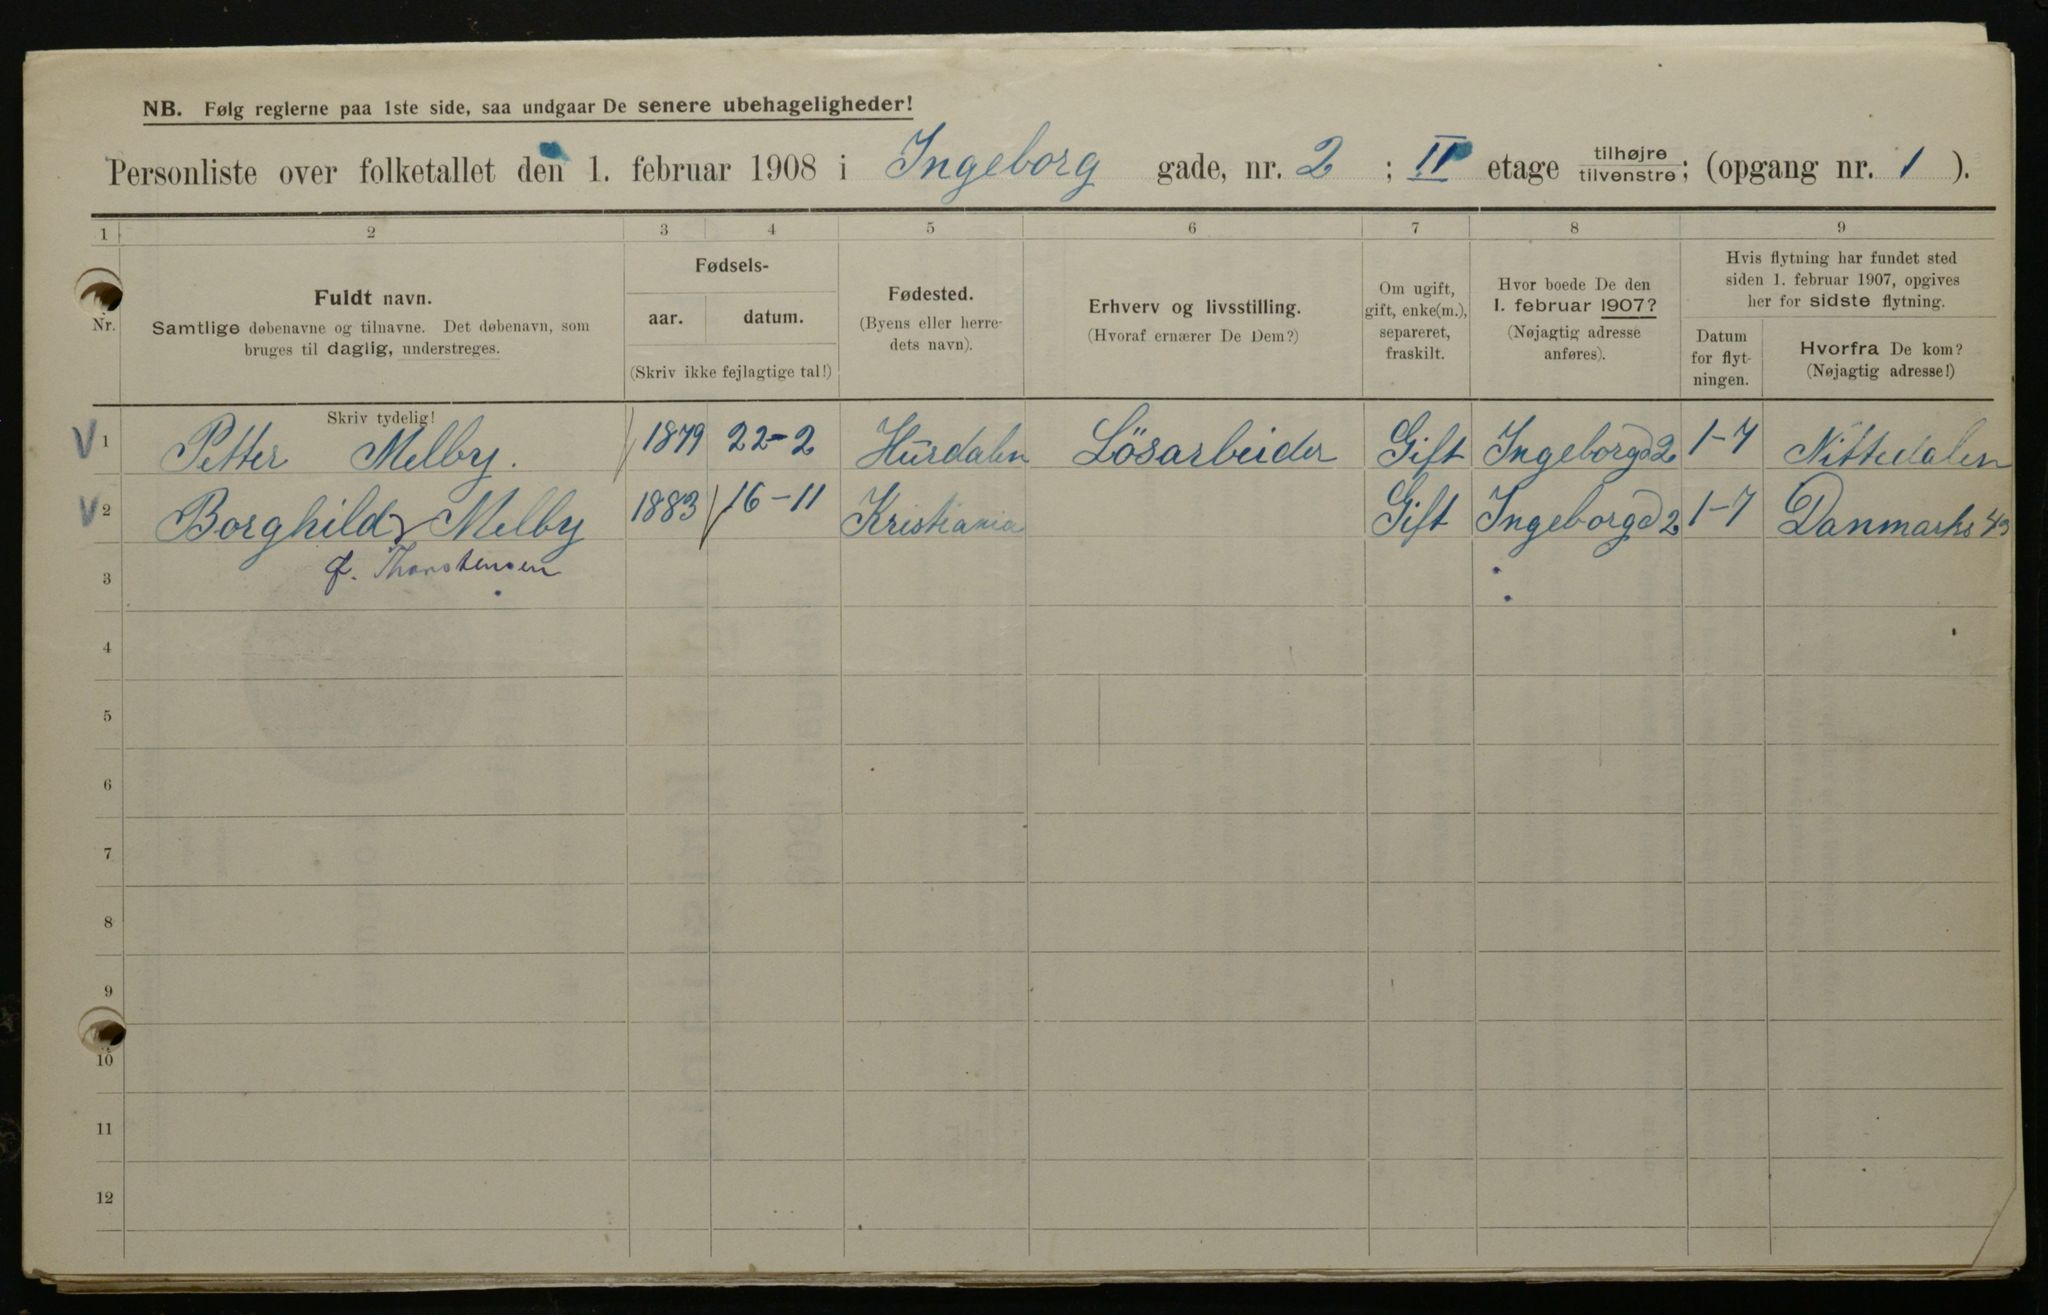 NB. Følg reglerne paa 1ste side, saa undgaar De senere ubehageligheder!
Personliste over folketallet den 1. februar 1908 i Ingeborg gade, nr. 2 ; II etage tilhøjre tilvenstre; (opgang nr. 1 ).
1 2 3 4 5 6 7 8 9
Nr.
Fuldt navn.
Samtlige døbenavne og tilnavne. Det døbenavn, som
bruges til daglig, understreges.
Skriv tydelig!
Fødsels-
aar. datum.
(Skriv ikke fejlagtige tal!)
Fødested.
(Byens eller herre-
dets navn).
Erhverv og livsstilling.
(Hvoraf ernærer De Dem?)
Om ugift,
gift, enke(m.),
separeret,
fraskilt.
Hvor boede De den
1. februar 1907?
(Nøjagtig adresse
anføres).
Hvis flytning har fundet sted
siden 1. februar 1907, opgives
her for sidste flytning.
Datum
for flyt-
ningen.
Hvorfra De kom?
(Nøjagtig adresse!)
V 1 Petter Melby. 1879 22-2 Hurdalen Lösarbeider Gift Ingeborgd 2 1-7 Nittedalen
V 2 Borghild Melby 1883 16-11 Kristiania Gift Ingeborgd 2 1-7 Danmarks 43
3 f. Thorstensen
4
5
6
7
8
9
10
11
12